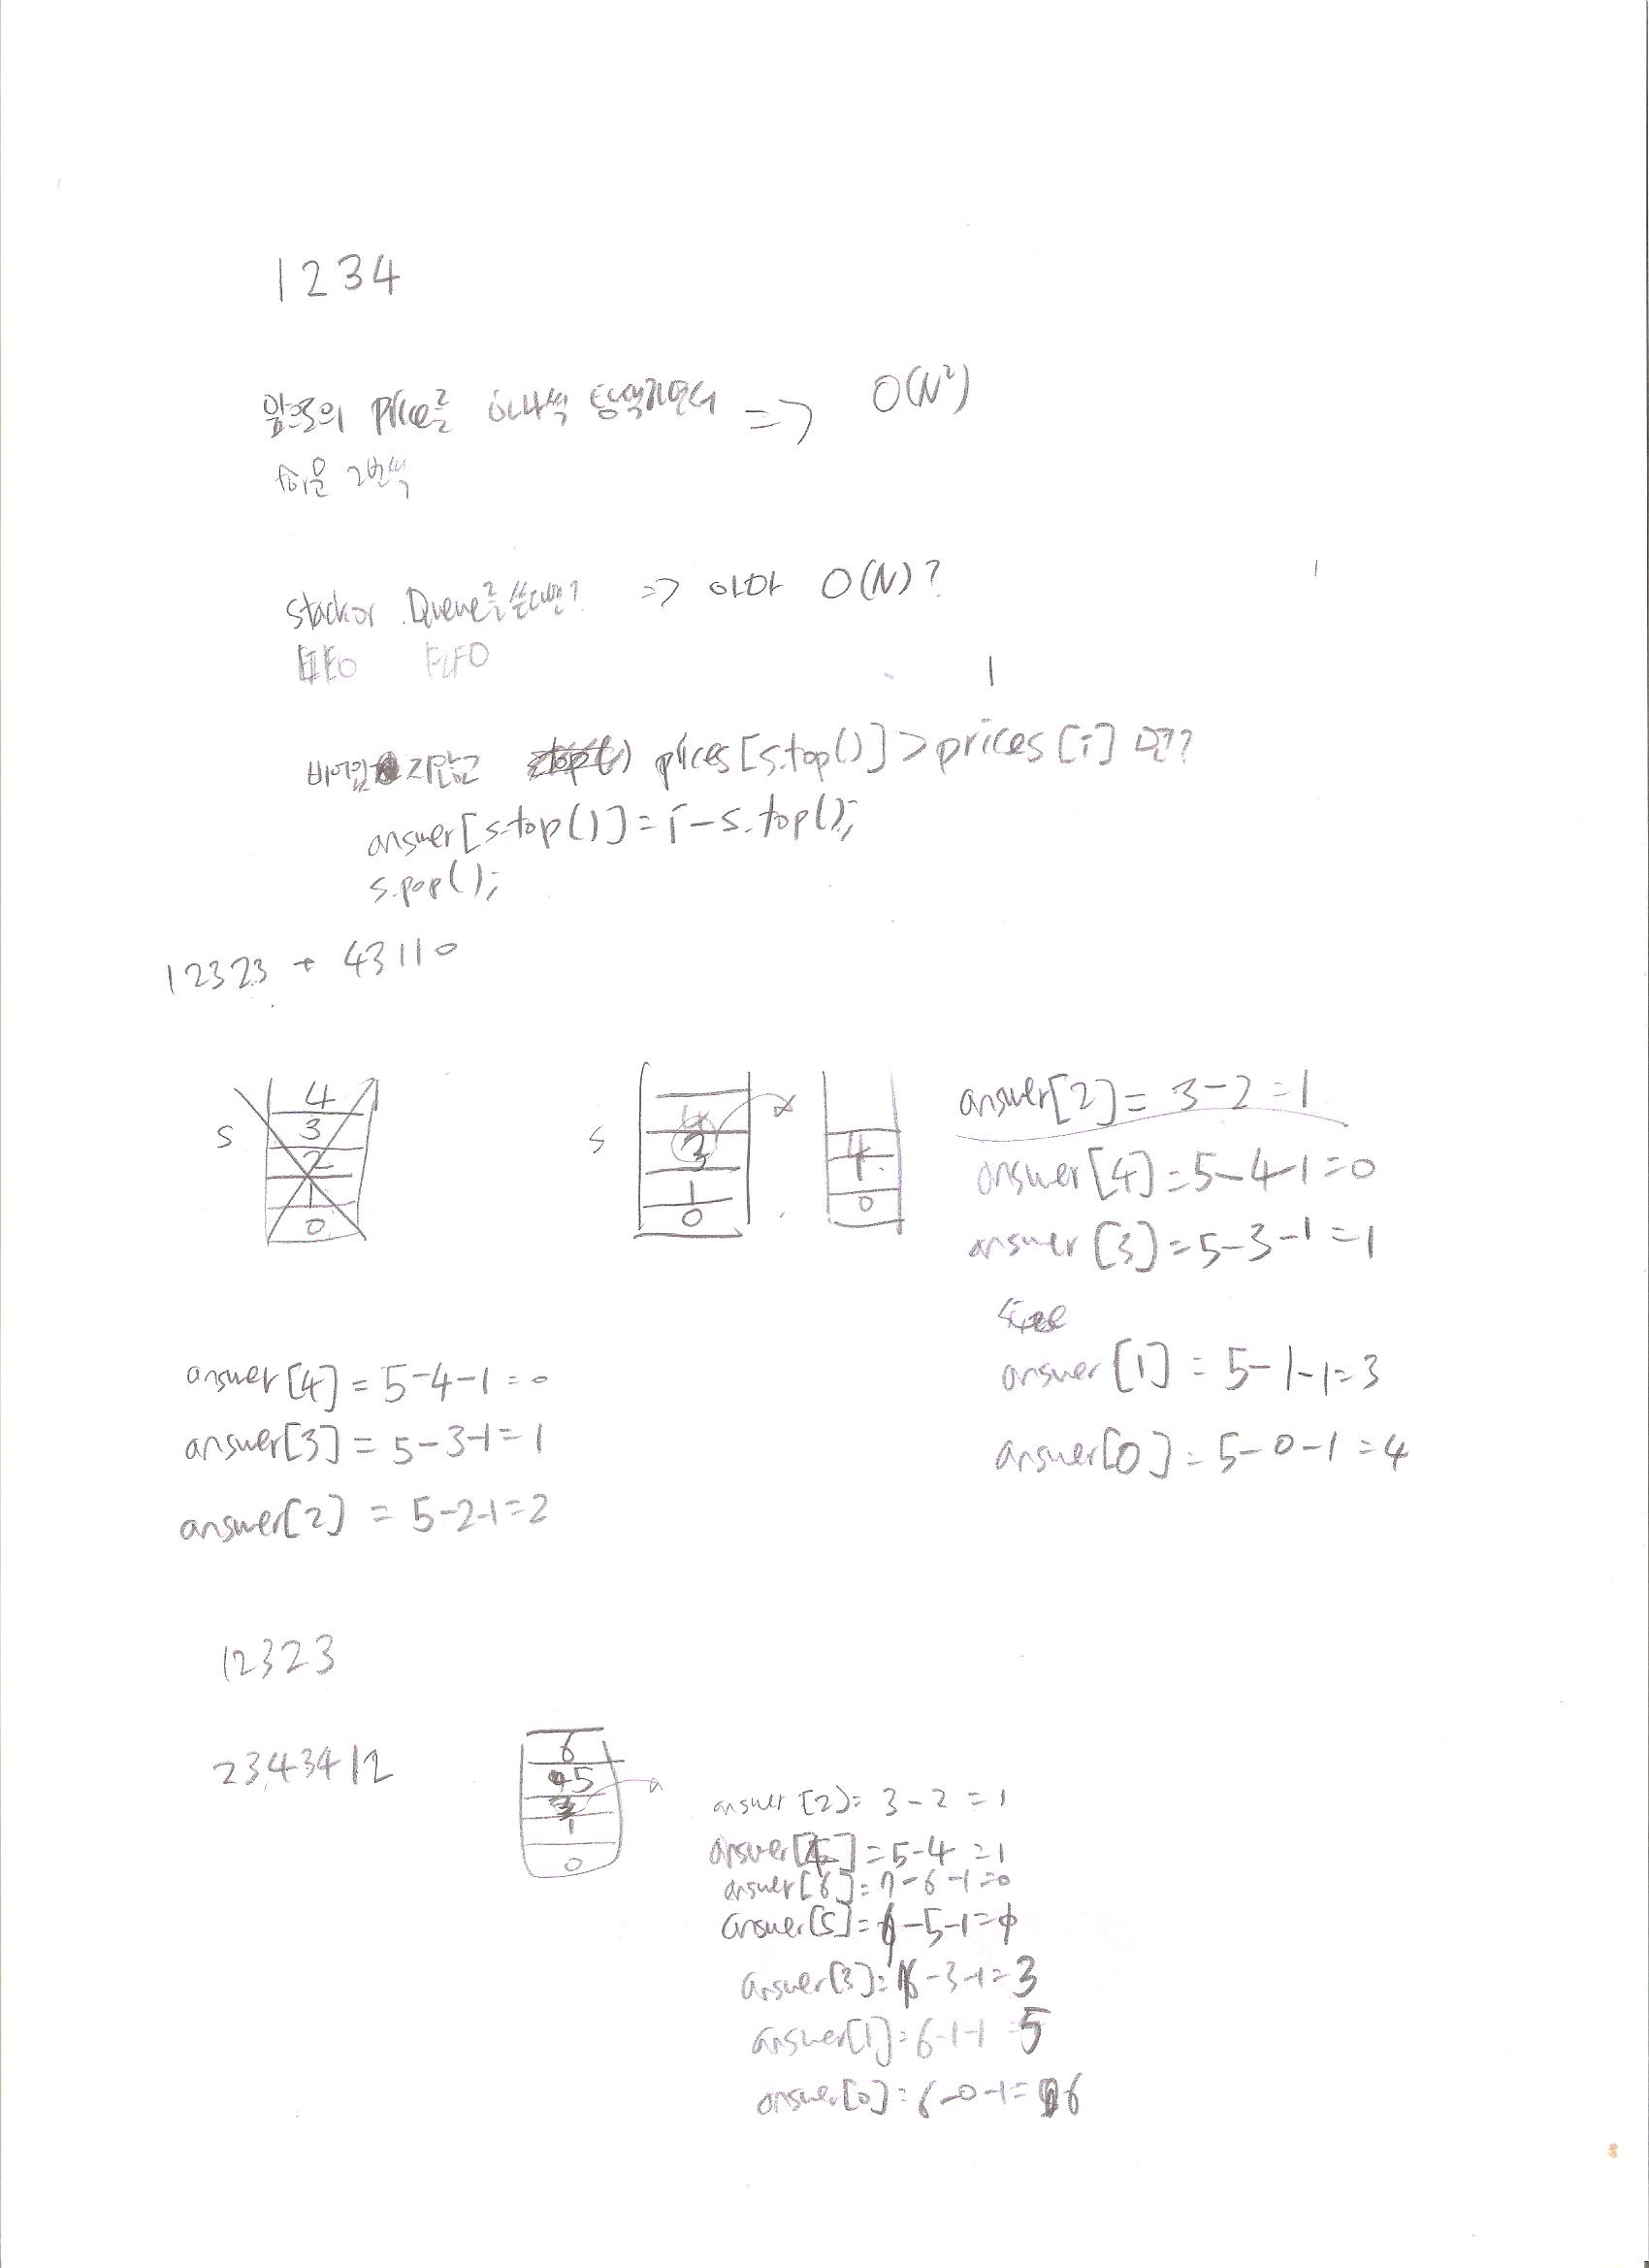 1234
앞으로의 price를 하나씩 탐색하면서 => O(N²)
다음 2번씩
stack or Queue를 쓴다면? => 아마 O(N)?
FIFO
비어있지않고 prices[s.top()]>prices[i] 면??
answer[s.top()]=i-s.top();
s.pop();
12323 → 43110
S
4
3
2
1
0
S
4
3
1
0
4
0
answer[2]=3-2=1
answer[4]=5-4-1=0
answer[3]=5-3-1=1
answer[1]=5-1-1=3
answer[0]=5-0-1=4
answer[4]=5-4-1=0
answer[3]=5-3-1=1
answer[2]=5-2-1=2
12323
2343412
6
5
3
1
0
answer[2]=3-2=1
answer[4]=5-4=1
answer[6]=7-6-1=0
answer[5]= -5-1=
answer[3]= -3-1=3
answer[1]=6-1-1=5
answer[0]=6-0-1=6